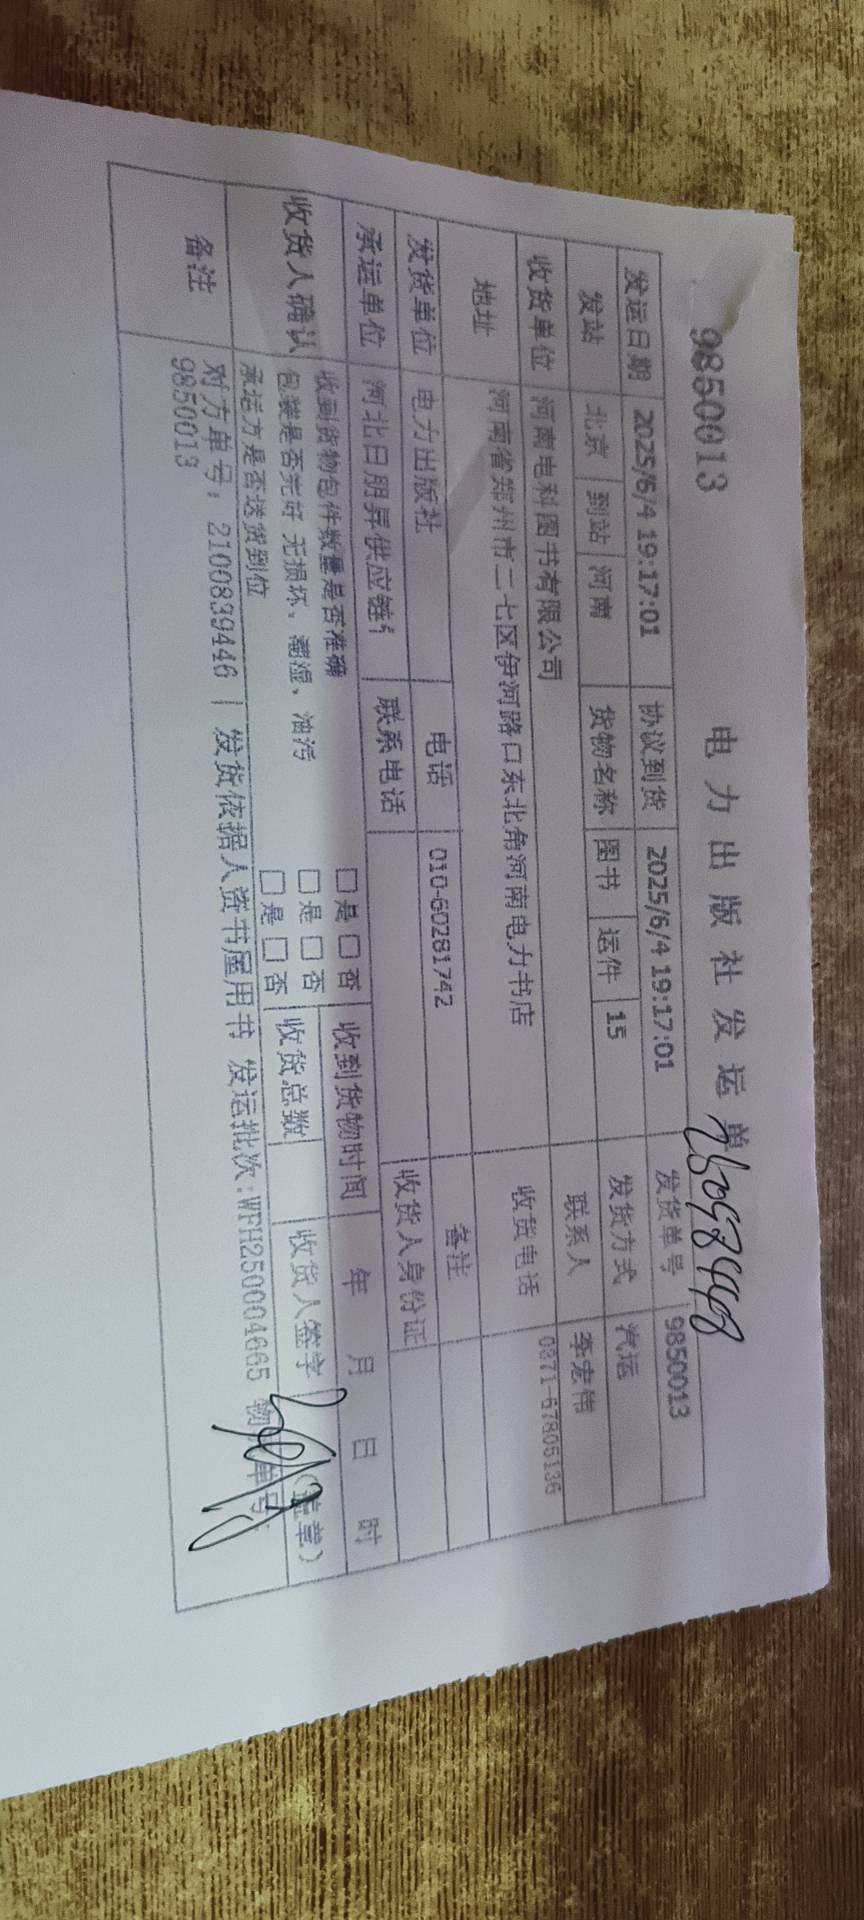 9850013
电力出版社发运单
发运日期 2025/6/4 19:17:01 协议到货 2025/6/4 19:17:01 发货单号 9850013
发站 北京 到站 河南 货物名称 图书 运件 15 发货方式 汽运
收货单位 河南电科图书有限公司 联系人 李宏伟
地址 河南省郑州市二七区伊河路口东北角河南电力书店 收货电话 0371-67805136
发货单位 电力出版社 电话 010-60281742 备注
承运单位 河北日朋昇供应链 联系电话 收货人身份证
收货人确认 收到货物包件数量是否准确 □是 □否 收到货物时间 年 月 日 时
包装是否完好 无损坏、潮湿、油污 □是 □否 收货总数 收货人签字 (盖章)
承运方是否送货到位 □是 □否
备注 对方单号: 2100839446 | 发货依据人资书屋用书 发运批次:WFH250004665 物流单号:
9850013